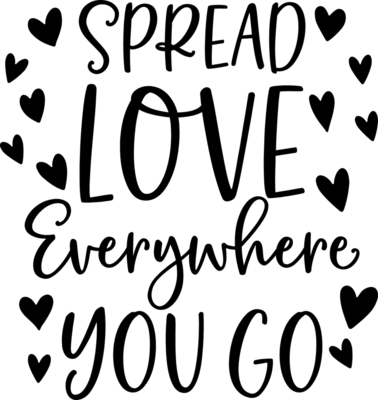 SPREAD
LOVE
Everywhere
YOU GO